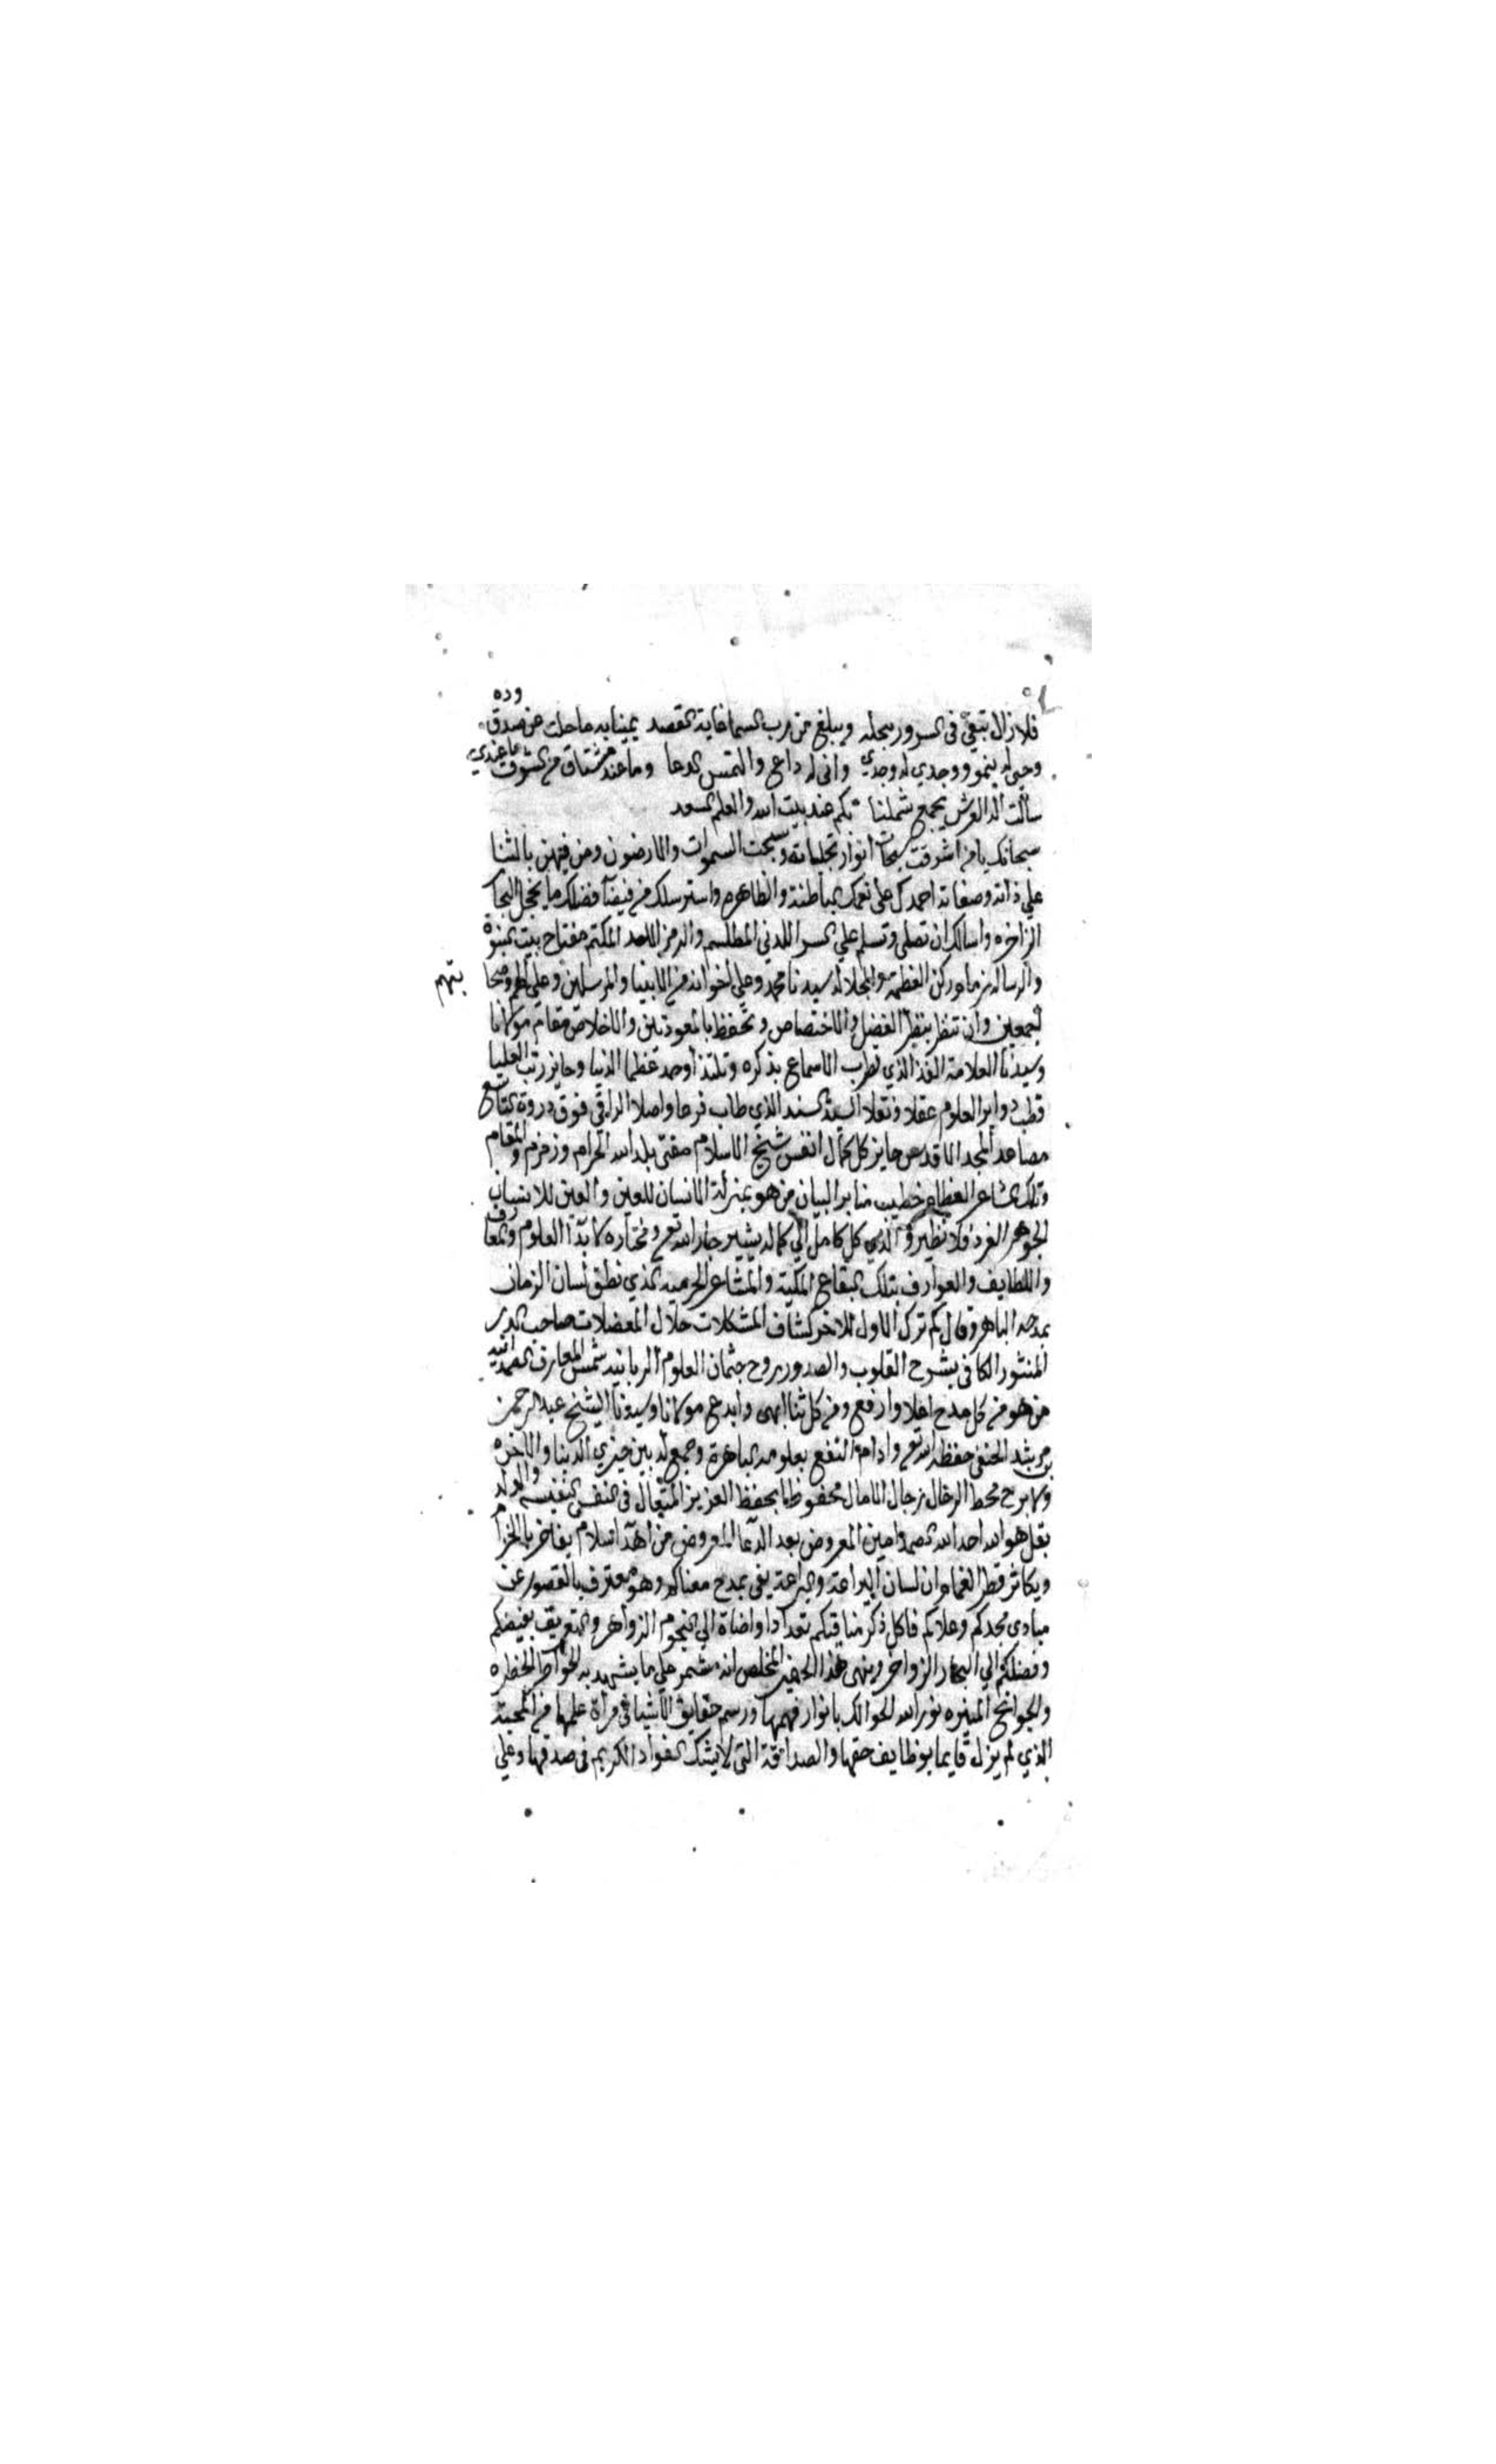 فلا زال يبقى فى السرور بجله ويبلغ من رب السما غاية القصد يمينا به ما حلت عن صدق وده
وحبي له ينمو ووجدي له وجدي واني له داع والتمس الدعا وما عند مشتاق من الشوق ما عندي
سألت اله العرش يجمع شملنا بكم عند بيت الله والعلم السعد
سبحانك يا من اشرقت سبحات انوار تجلياته وسبحت السموات والارضون ومن فيهن بالثنا
على ذاته وصفاته احمدك على نعمك الباطنة والظاهره واسترسلك من فيض فضلك ما يخجل البحا
الزاخره واسالك ان تصلي وتسلم على السر اللدني المطلسم والرمز المكتم مفتاح بيت النبوة
والرساله زمام ركن العظمة والجلاله سيدنا محمد وعلى اخوانه من الانبيا والمرسلين وعلى الهم وصحا بتهم
اجمعين وان تنظر بنظر الفضل والاختصاص وتحفظ بالمعوذتين والاخلاص مقام مولانا
وسيدنا العلامة الفذ الذي تطرب الاسماع بذكره وتلتذ اوحد عظما الدنيا وحايز رتب العليا
قطب دواير العلوم عقلا ونقلا السيد السند الذي طاب فرعا واصلا الراقي فوق ذروة
مصاعد المجد الاقدس حايز كل كمال انفس شيخ الاسلام مفتي بلد الله الحرام وزمزم والمقام
وتلك المشاعر العظام خطيب منابر البيان من هو بمنزلة الانسان للعين والعين للانسان
الجوهر الفرد فلا نظير الذي كل كامل الى كماله يشير جار الله تع ومختاره لابدا العلوم والمعارف
واللطايف والعوارف بتلك البقاع المكية والمشاعر الحرميه الذي نطق لسان الزمان
بمدحه الباهر وقال كم ترك الاول للاخر كشاف المشكلات حلال المعضلات صاحب الدر
المنثور الكافي بشرح القلوب والصدور روح جثمان العلوم الربانيه شمس المعارف الصمدانيه
من هو من كل مدح اعلا وارفع ومن كل ثنا ابهى وابدع مولانا وسيدنا الشيخ عبد الرحمن
بن مرشد الحنفي حفظه الله تع وادام النفع بعلومه الباهرة وجمع له بين خيري الدنيا والاخره
ولا برح محط الرحال رجال الامال محفوظا بحفظ العزيز المتعال في النفس النفيسه والولد
بقل هو الله احد الله الصمد امين المعروض بعد الدعا المعروض من اهدا سلام يفاخر بالخزام
ويكاثر قطر الغمام وان لسان اليراعة والبراعة يفي بمدح معناكم وهو معترف بالقصور عن
مبادي مجدكم وعلاكم فاكل ذكر مناقبكم تعدادا واضاة الى النجوم الزواهر والتعريف بفيضكم
وفضلكم الى البحار الزواخر وينهى هذا الحقير المخلص انه مستمر على ما يشهد به الخواطر الخطره
والجوانح المنيره نور الله الحوالك بانوار فهمها ورسم حقايق الاشيا في مرآة علمها من المحبة
الذي لم يزل قايما بوظايف حقها والصداقة التي لا يشك الفواد الكريم فى صدقها وعلى